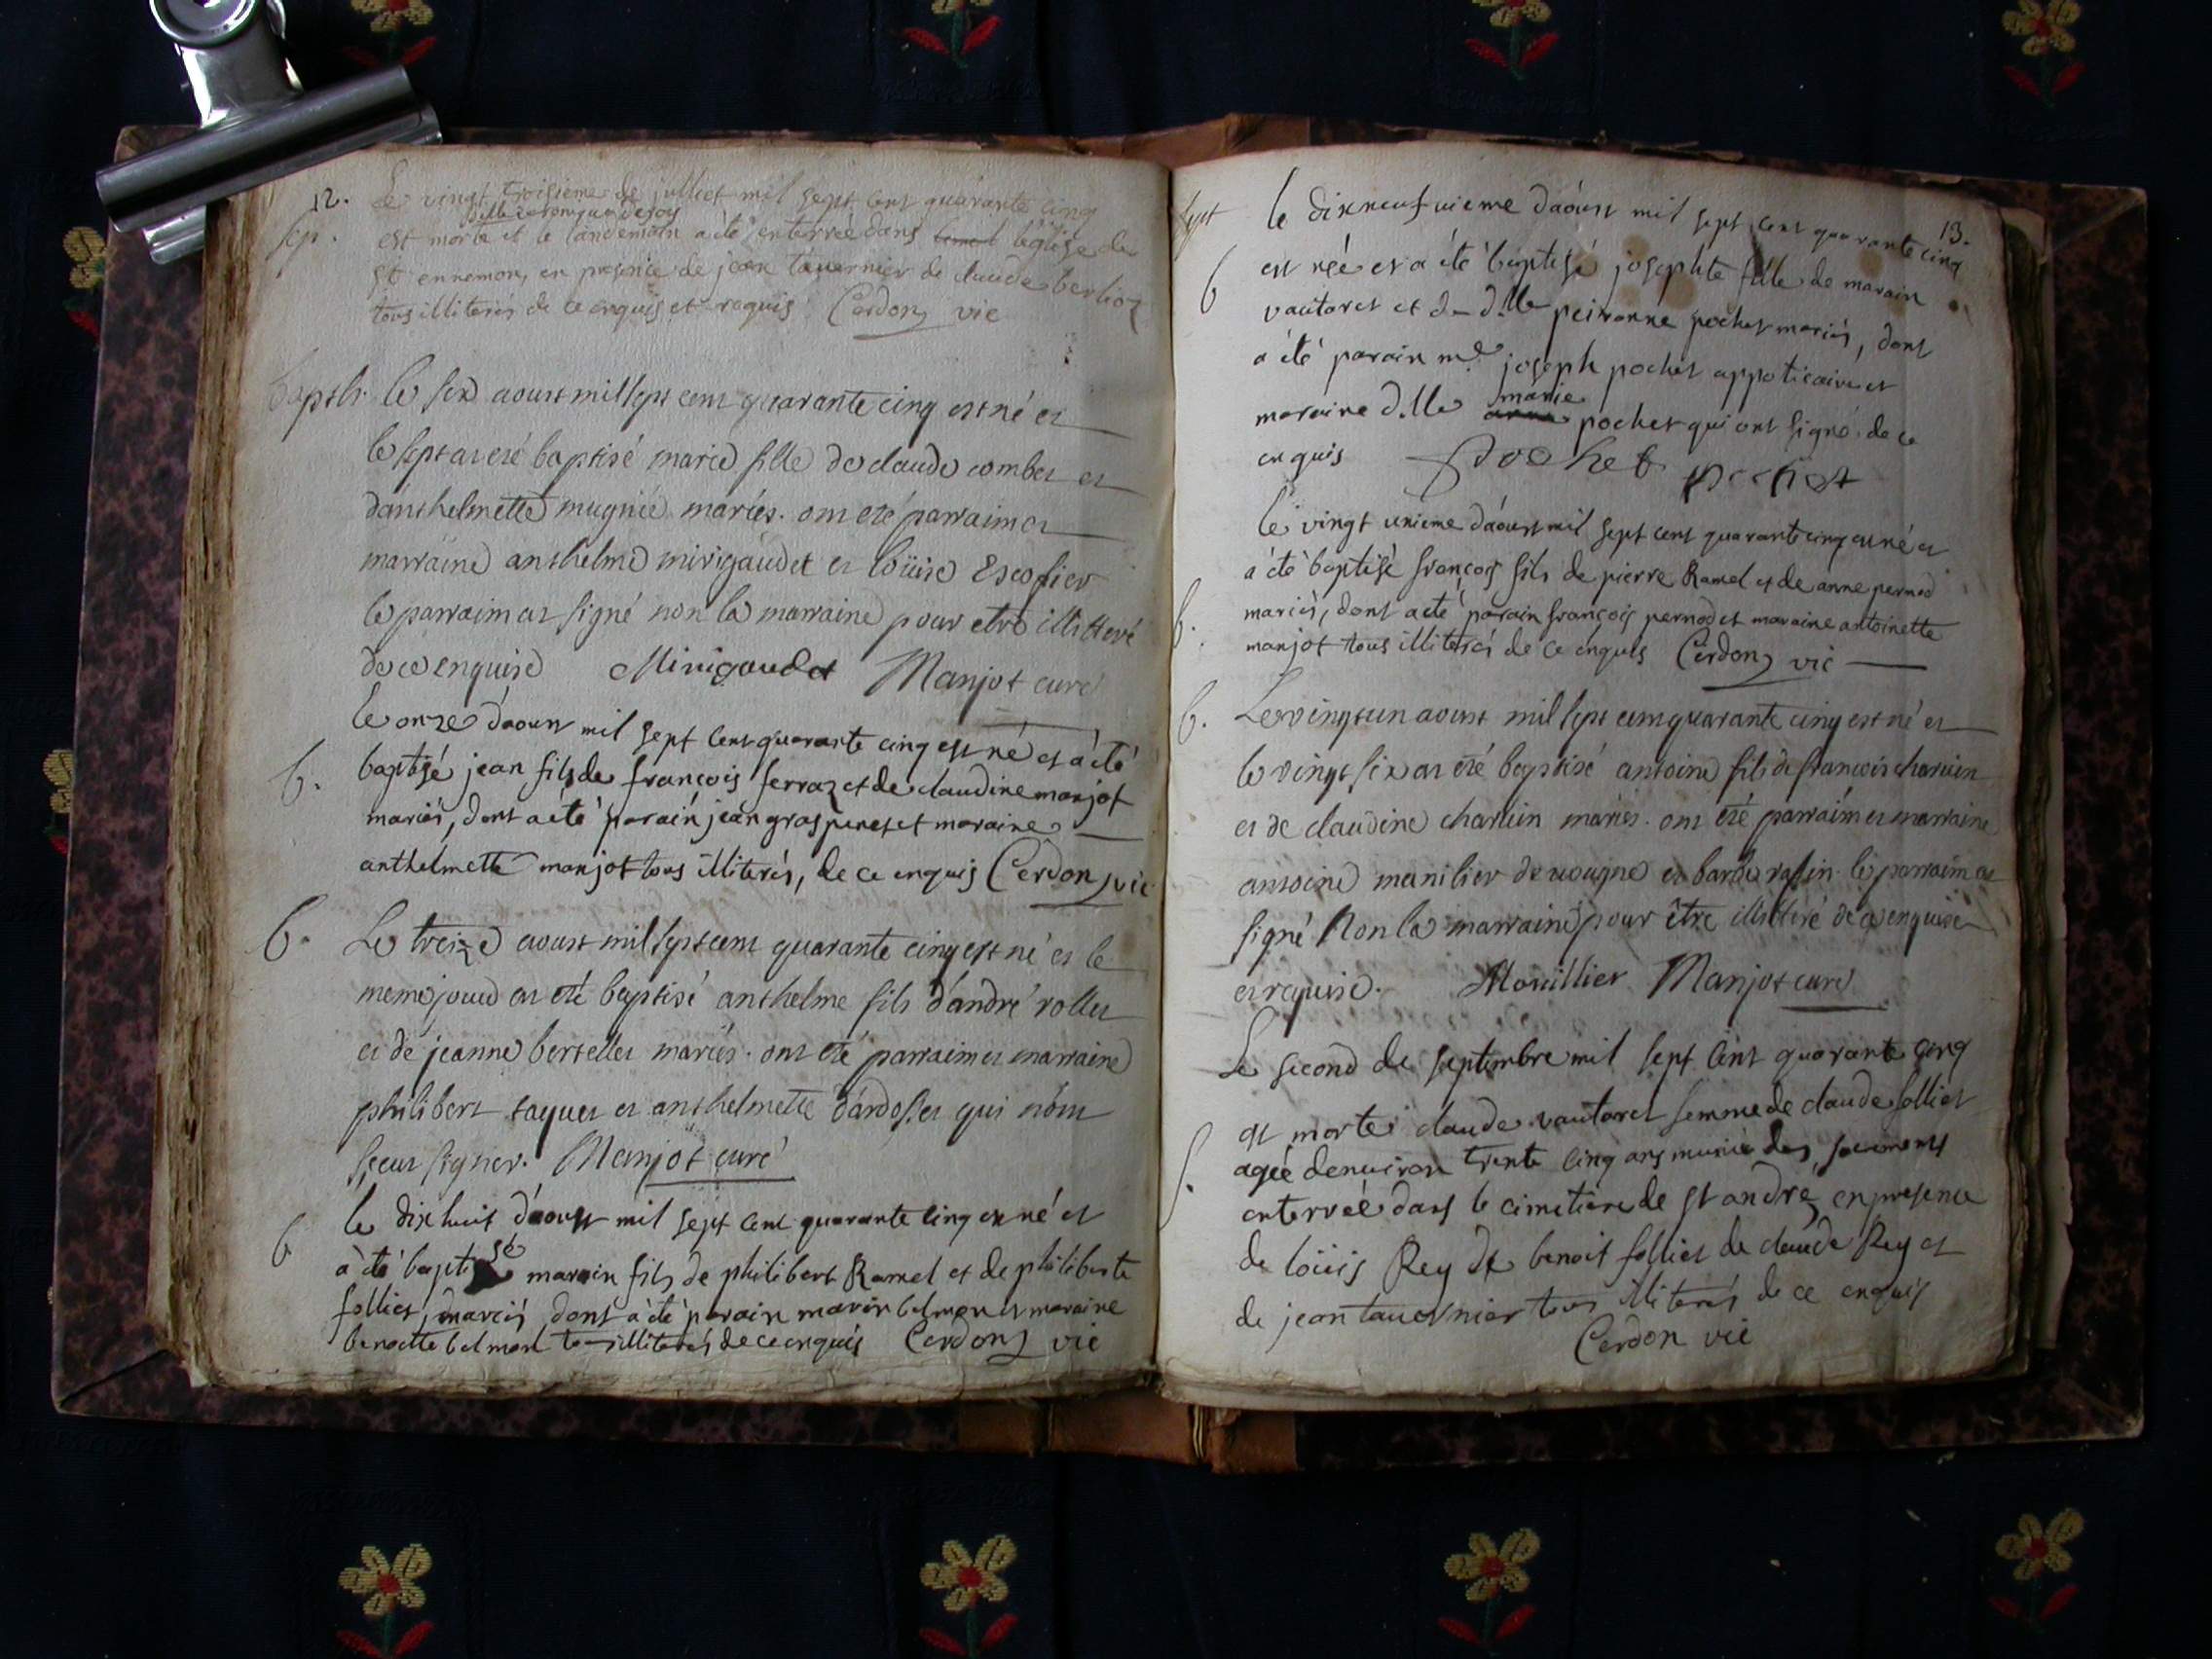 12.
Le vingt troisieme de julliet mil sept cent quarante cinq
sep.
est morte et le landemain a été enterrée dans léglise de
St ennemon, en presence de jean tavernier de claude berlioz
tous illiterés de ce enquis et requis Cerdon vic
Baptê. le six aoust mil sept cent quarante cinq est né et
le sept at eté baptisé marie fille de claude combet et
danthelmette mugnié mariés. ont eté parraim et
marraine anthelme mirigaudet et loüise Escofier
le parraim at signé non la marraine pour etre illitteré
de ce enquise Mirigaudet Manjot curé
le onze daoust mil sept cent quarante cinq est né et a été
b.
baptisé jean fils de françois ferraz et de claudine manjot
mariés, dont a été parain jean gras peret et maraine
anthelmette manjot tous illiterés, de ce enquis Cerdon vic
b. Le treize aoust mil sept cent quarante cinq est né et le
meme jour at eté baptisé anthelme fils d'andré rollet
et de jeanne bertellet mariés. ont eté parraim et marraine
philibert taquet et anthelmette dardosset qui nont
sçeut signer. Manjot curé
le dix huit d'aoust mil sept cent quarante cinq est né et
b
à été baptisé marin fils de philibert Ramel et de philiberte
folliet, mariés, dont a été parain marin belmont et maraine
benoitte belmont illiterés de ce enquis Cerdon vic
13.
sept le dixneufuieme daoust mil sept cent quarante cinq
b
est née et a été baptisé josephte fille de marain
vautaret et de d.lle peironne pochet mariés, dont
a été parain me joseph pochet appoticaire et
marie
maraine d.lle pochet qui ont signé de ce
enquis Pochet pochet
le vingt unieme daoust mil sept cent quarante cinq est né et
a été baptisé françois fils de pierre Ramel et de anne pernod
b.
mariés, dont a été parain françois pernod et maraine antoinette
manjot tous illiterés de ce enquis Cerdon vic
b. Le vingt un aoust mil sept cent quarante cinq est né et
le vingt six at eté baptisé antoine fils de francois charvin
et de claudine charvin mariés. ont eté parraim et marraine
antoine le parraim at
signé Non la marraine pour être illitteré de ce enquise
et requise. Monillier Manjot curé
Le second de septembre mil sept cent quarante cinq
est morte claude vautaret femme de claude folliet
s.
agée denviron trente cinq ans munie des sacrements
enterrée dans le cimetiere de st andré, en presence
de loüis Rey de benoit folliet de claude Rey et
de jean tavernier tous illiterés de ce enquis
Cerdon vic